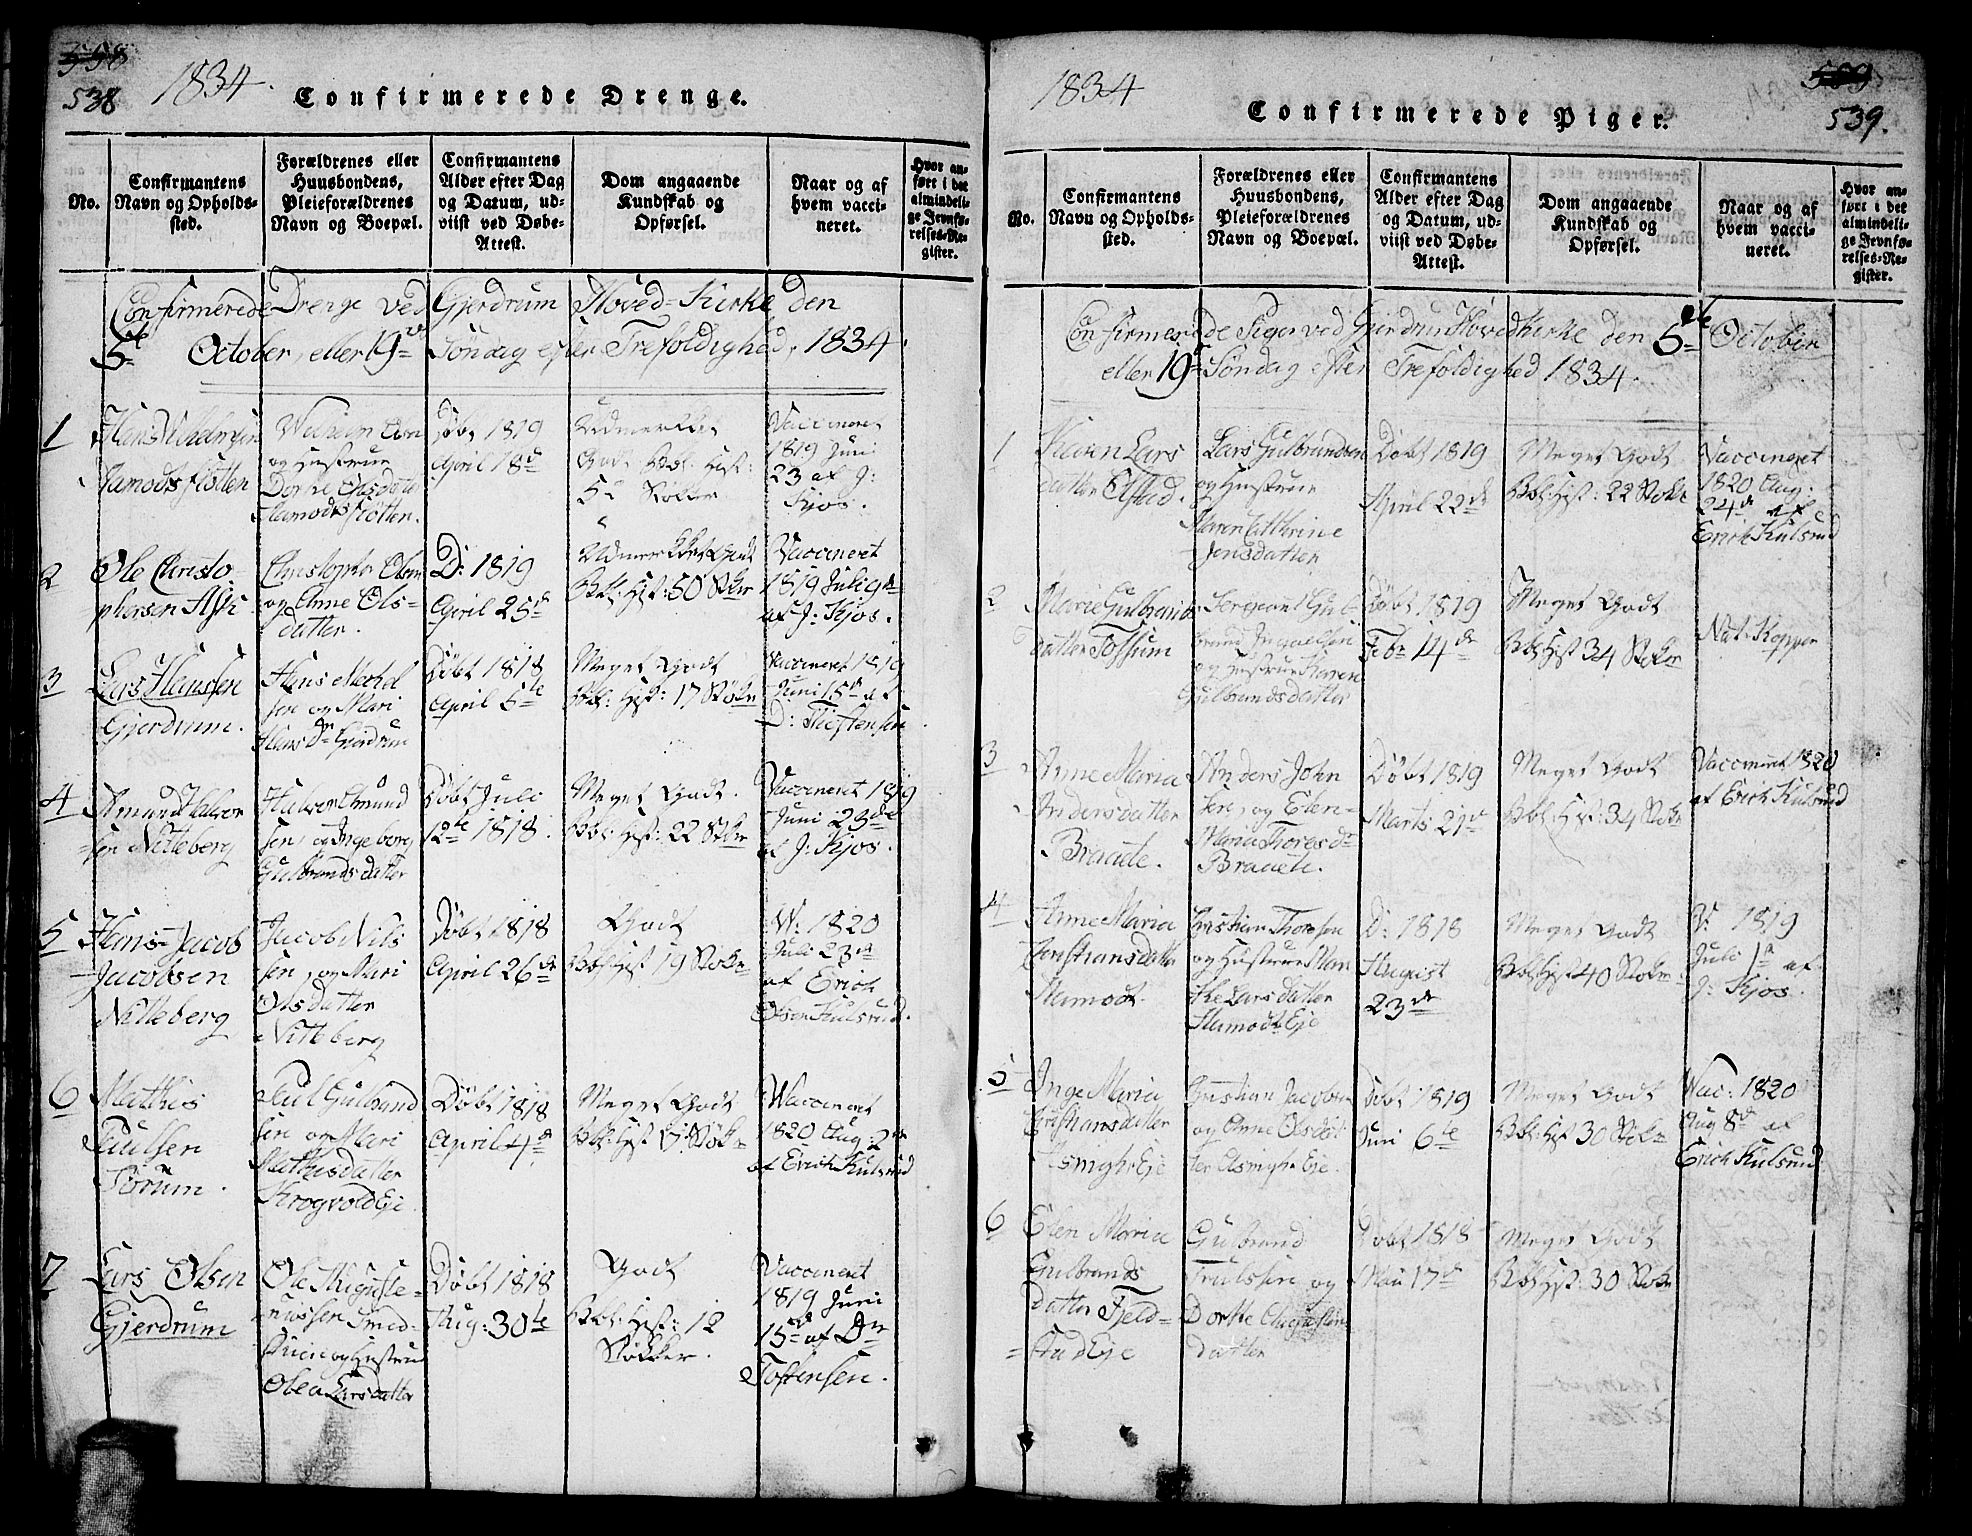 558
538
1834.
Confirmerede Drenge.
No.
Confirmantens
Navn og Opholds-
sted.
Forældrenes eller
Huusbondens,
Pleieforældrenes
Navn og Boepæl.
Confirmantens
Alder efter Dag
og Datum, ud-
viist ved Døbe-
Attest.
Dom angaaende
Kundskab og
Opførsel.
Naar og af
hvem vacci-
neret.
Hvor an-
ført i det
almindeli-
ge Jevnfø-
relses-Re-
gister.
Confirmerede Drenge ved Gjerdrum Hoved-Kirke den
5te October, eller 19de Søndag efter Trefoldighed, 1834.
1
Hans Vilhelmsen
Hamodtsflotten
Wilhelm Olsen
og Hustrue
Dorthe Olsdatter
Hamodtsflotten.
Døbt 1819
April 18de
Udmerket
Godt Bbl: Hist:
52 Støkker
Vaccineret
1819 Juni
23 af J:
Kjos.
2
Ole Christo-
phersen Ask
Christopher Olsen
og Anne Ols-
datter.
D: 1819
April 25de
Udmerkket Godt
Bbl: Hist: 50 Støkr
Vaccineret
1819 Juli 9de
af J: Kjos.
3
Lars Hanssen
Gjerdrum.
Hans Michel
sen og Mari
Hans Dr Gjerdrum
Døbt 1818
April 5te
Meget Godt
Bbl: Hist: 17 Støkr
Vaccineret 1819
Juni 15de af
D: Thoftensen
4
Amund Halvor
sen Nitteberg
Halvor Amund
sen, og Ingeborg
Gulbrandsdatter
Døbt Juli
12te 1818.
Meget Godt.
Bbl: Hist: 22 Støkr
Vaccineret 1819
Juni 23de
af J: Kjos.
5
Hans Jacob
Jacobsen
Nitteberg
Jacob Nils
sen, og Mari
Olsdatter
Nitteberg
Døbt 1818
April 26de
Godt
Bbl: Hist 19 Støkr
W: 1820
Juli 23de
af Erich
Olsen Kulsrud.
6
Mathis
Paulsen
Sørum.
Paul Gulbrand
sen og Mari
Mathisdatter
Krogvold Eje
Døbt 1818
April 4de
Meget Godt
Bbl: Hist Støkr
Waccineret
1820 Aug: 2de
af Erich Kulsrud
7
Lars Olsen
Gjerdrum
Ole Auguste-
Smed-
og Hustrue
Olea Larsdatter
Døbt 1818
Aug: 30te
Godt
Bbl: Hist: 12
Støkker.
Vaccineret
1819 Juni
15de af Dr
Toftensen.
1834
Confirmerede Piger.
509
539.
No.
Confirmantens
Navn og Opholds-
sted.
Forældrenes eller
Huusbondens,
Pleieforældrenes
Navn og Boepæl.
Confirmantens
Alder efter Dag
og Datum, ud-
viist ved Døbe-
Attest.
Dom angaaende
Kundskab og
Opførsel.
Naar og af
hvem vacci-
neret.
Hvor an-
ført i det
almindeli-
ge Jevnfø-
relses-Re-
gister.
Confirmerede Piger ved Gjerdrum Hoved Kirke den 5te October
eller 19de Søndag efter Trefoldighed 1834.
1
Karen Lars
datter Elstad.
Lars Gulbrandsen
og Hustrue
Maren Cathrine
Jensdatter
Døbt 1819
April 22de
Meget Godt
Bbl: Hist: 22 Støkr
Vaccineret
1820 Aug.
24de af
Erich Kulsrud
2
Marie Gulbrands
datter Fossum
Sergeant Gul-
brand
og Hustrue Karen
Gulbrandsdatter
Døbt 1819
Febr 14de
Meget Godt
Bbl: Hist 34 Støkr
Nat. Kopper
3
Anne Maria
Andersdatter
Braaete.
Anders John
sen, og Elen
Maria Thoresdr
Braaete.
Døbt 1819
Marts 21de
Meget Godt
Bbl: Hist: 34 Støkr
Vaccineret 1820
af Erich Kulsrud
4
Anne Maria
Christiansdatter
Hamodt.
Christian Thoresen
og Hustrue Mari
the Larsdatter
Hamodt Eje
D: 1818
August
23de
Meget Godt
Bbl: Hist 40 Støkr
V: 1819
Juli 1st af
J: Kjos.
5
Inge Maria
Christiansdatter
Asmyhr Eje
Christian Jacobsen
og Anne Olsdat
ter Asmyhr Eje.
Døbt 1819
Juni 6te
Meget Godt
Bbl: Hist 30 Støkr
Vac: 1820
Aug 8de af
Erich Kulsrud
6
Elen Maria
Gulbrands
datter Fjeld-
stad Eje
Gulbrand
Trulssen og
Dorthe Augustins
datter
Døbt 1818
Mai 17de
Meget Godt
Bbl: Hist: 30 Støkr